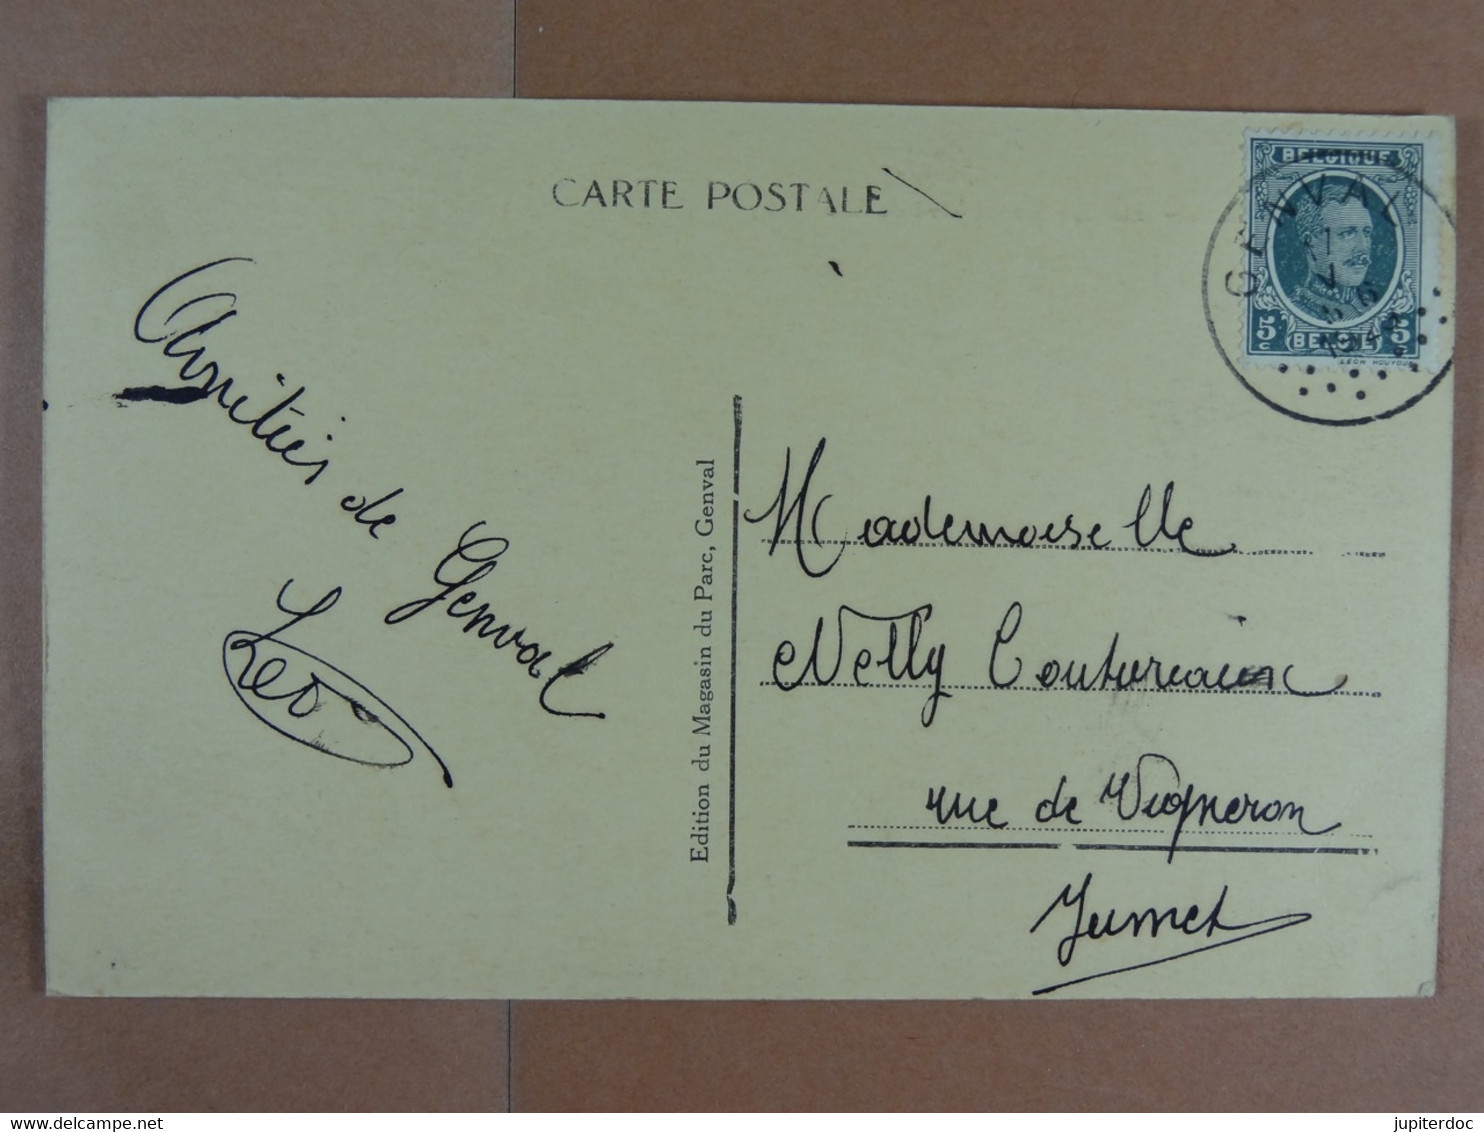 CARTE POSTALE
BELGIQUE
GENVAL
5 c
BELGIE
5 c
Amitiés de Genval
Leo
Edition du Magasin du Parc, Genval
Mademoiselle
Nelly Coutureaux
rue de Vigneron
Jumet
delcampe.net
jupiterdoc